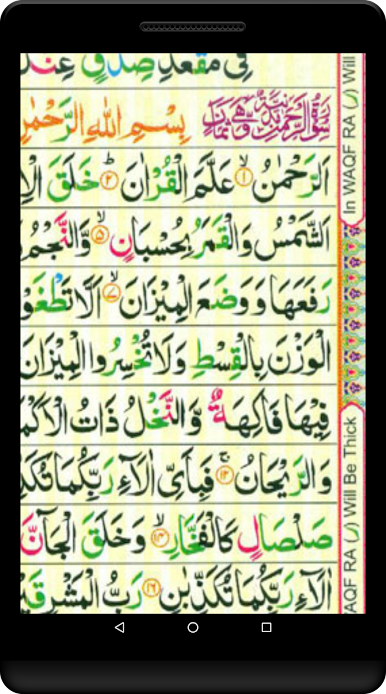 فِيْ مَقْعَدِ صِدْقٍ عِنْدَ
سُوْرَةُ الرَّحْمٰنِ مَدَنِيَّةٌ بِسْمِ اللهِ الرَّحْمٰنِ
اَلرَّحْمٰنُ ۙ۱ عَلَّمَ الْقُرْاٰنَ ؕ۲ خَلَقَ الْاِ
اَلشَّمْسُ وَالْقَمَرُ بِحُسْبَانٍ ۙ۵ وَّالنَّجْمُ
رَفَعَهَا وَوَضَعَ الْمِيْزَانَ ۙ۷ اَلَّا تَطْغَوْ
الْوَزْنَ بِالْقِسْطِ وَلَا تُخْسِرُوا الْمِيْزَانَ
فِيْهَا فَاكِهَةٌ وَّالنَّخْلُ ذَاتُ الْاَكْمَ
وَالرَّيْحَانُ ۚ۱۲ فَبِاَيِّ اٰلَآءِ رَبِّكُمَا تُكَذِّ
صَلْصَالٍ كَالْفَخَّارِ ۙ۱۴ وَخَلَقَ الْجَآنَّ
اٰلَآءِ رَبِّكُمَا تُكَذِّبٰنِ ۱۶ رَبُّ الْمَشْرِقَيْ
In WAQF RA (ر) Will
AQF RA (ر) Will Be Thick